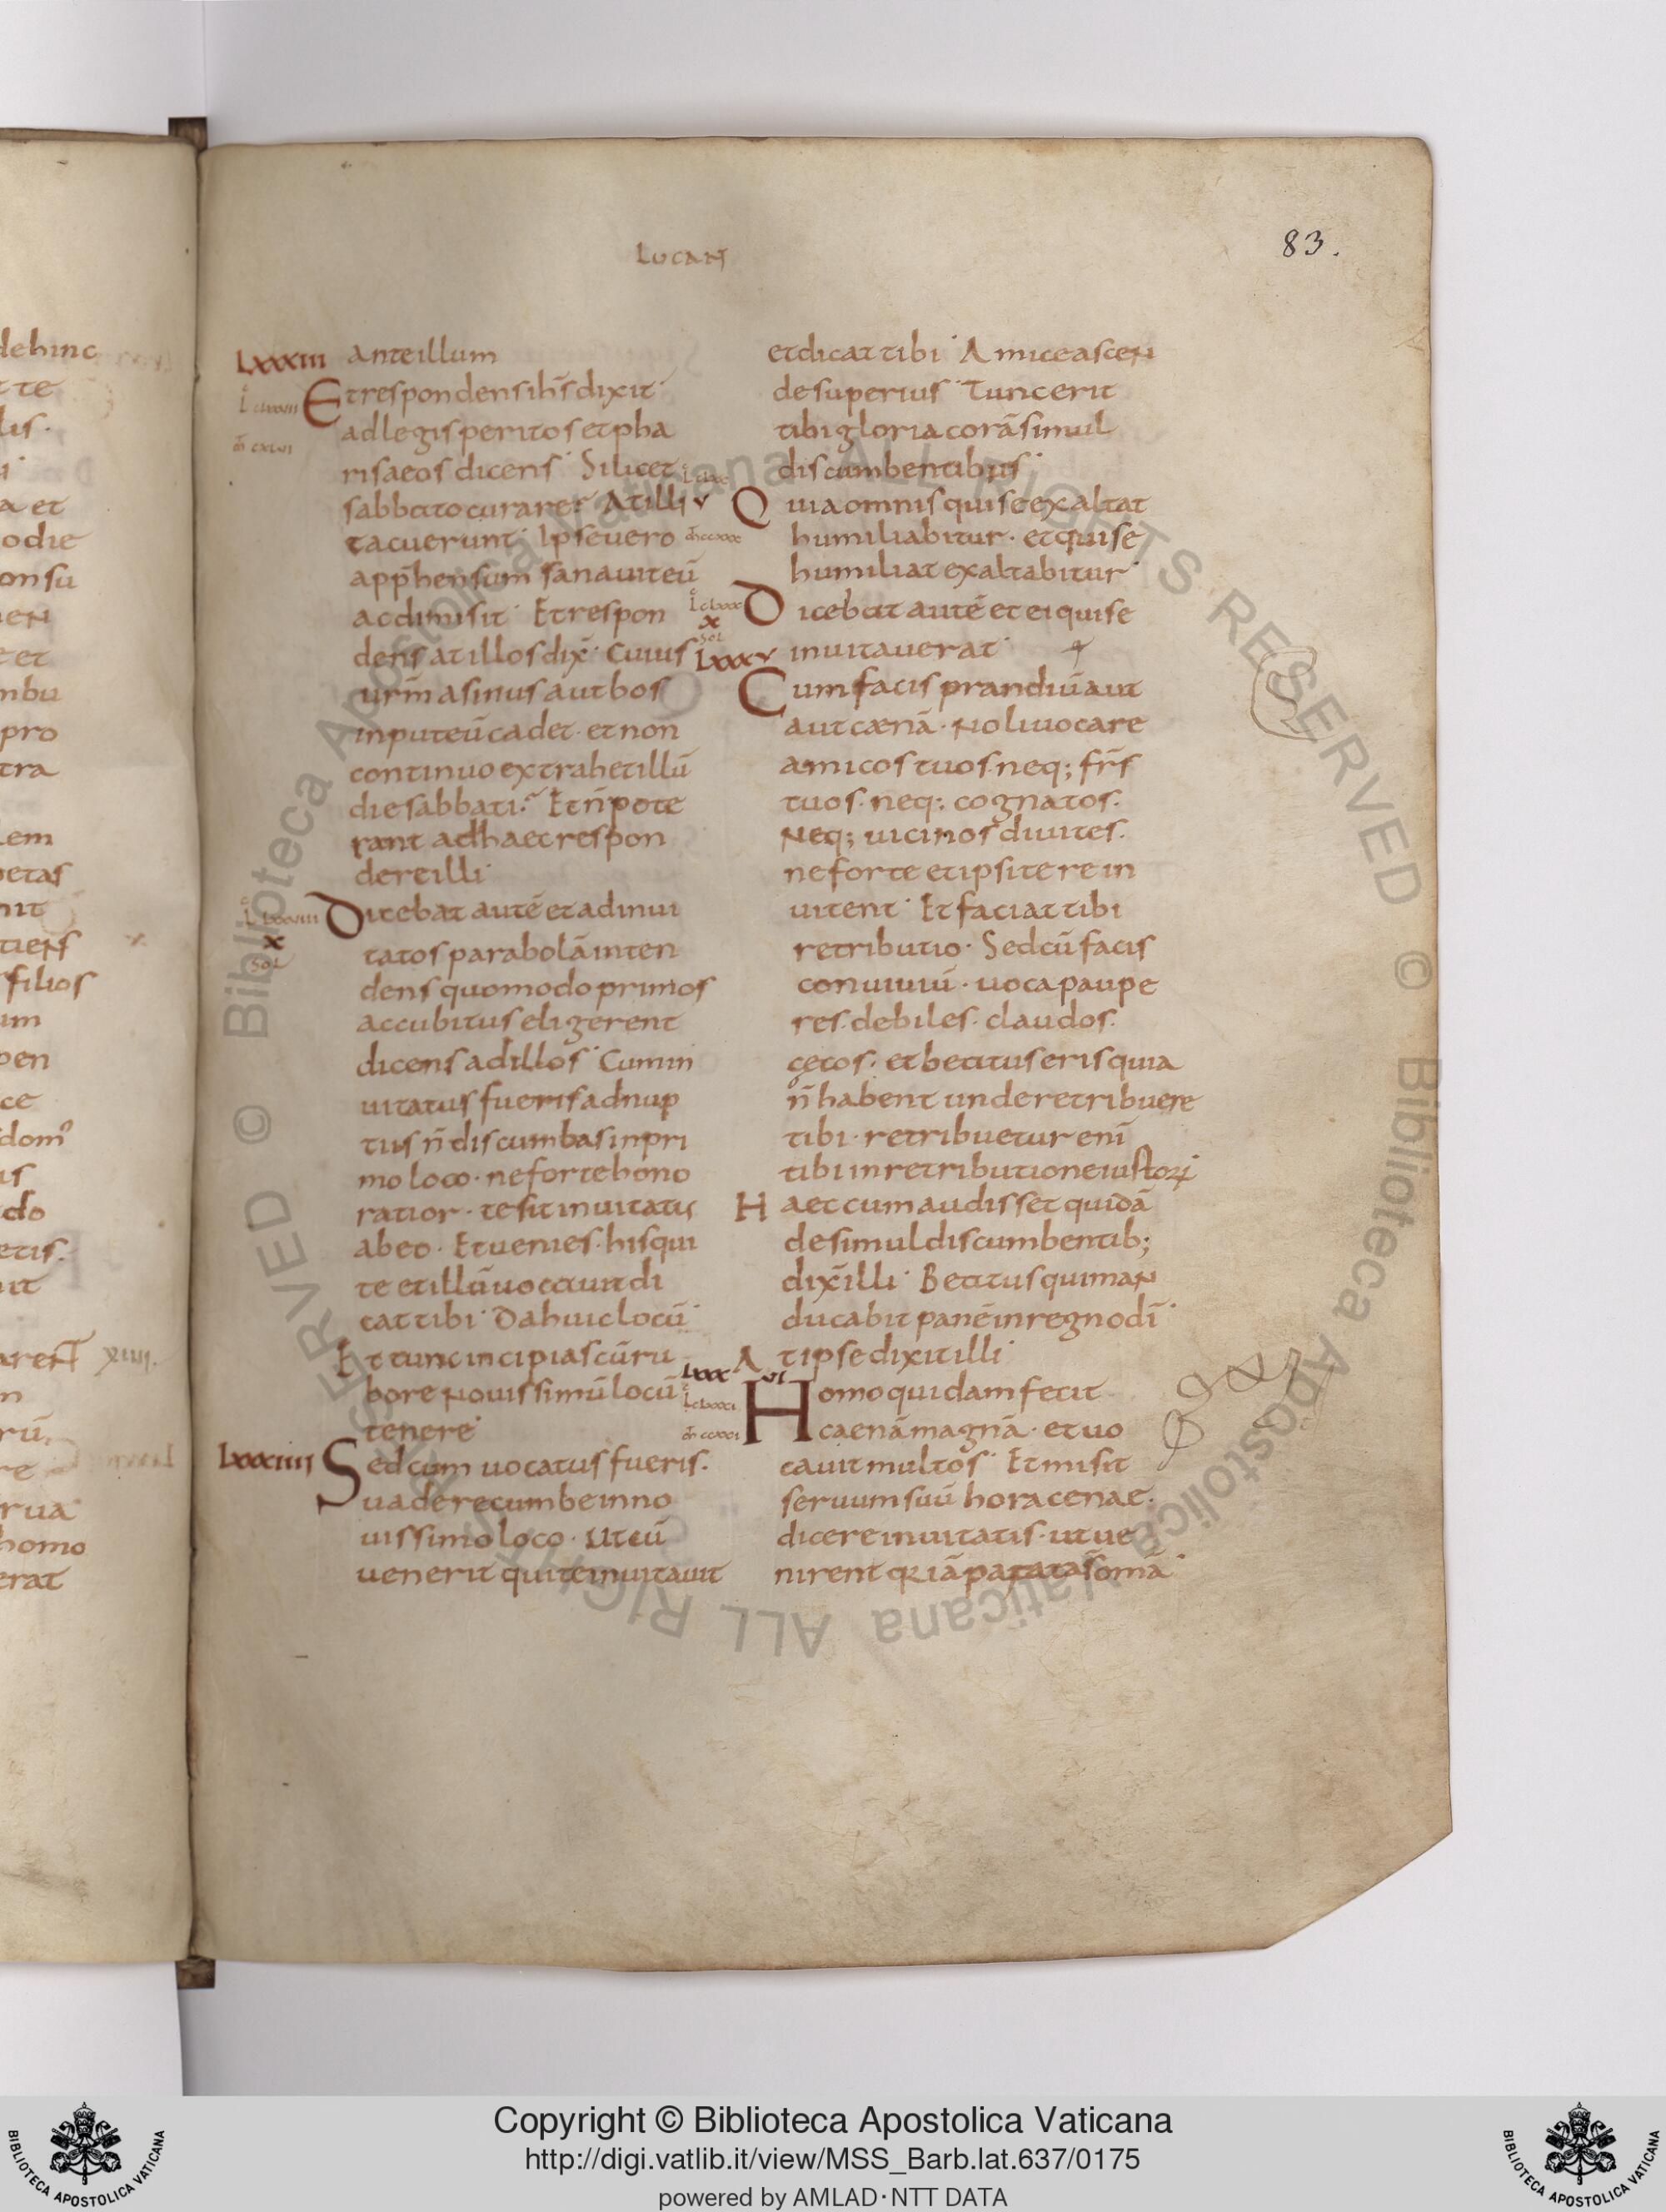 83.
LUCAN
LXXXIII
ante illum
Et respondens ihs̄ dixit
ad legis peritos et pha
risaeos dicens Si licet
sabbato curare? At illi
tacuerunt Ipse uero
app̄hensum sanauit eū
ac dimisit Et respon
dens at illos dix̄ Cuius
urm̄ asinus aut bos
in puteū cadet · et non
continuo extrahet illū
die sabbati? Et n̄ pote
rant ad haec respon
dere illi
X
SOL
Dicebat autē et ad inui
tatos parabolā inten
dens quomodo primos
accubitus eligerent
dicens ad illos Cum in
uitatus fueris ad nup
tus n̄ discumbas in pri
mo loco · ne forte hono
ratior · te sit inuitatus
ab eo · Et ueniens · his qui
te et illū uocauit di
cat tibi Da huic locū
Et tunc incipias cū ru
bore nouissimū locū
tenere
LXXXIIII
Sed cum uocatus fueris ·
Uade recumbe in no
uissimo loco · Ut cū
uenerit qui te inuitauit
et dicat tibi Amice ascen
de superius Tunc erit
tibi gloria corā simul
discumbentibus
V
Quia omnis qui se exaltat
humiliabitur · et qui se
humiliat exaltabitur
X
SOL
Dicebat autē et ei qui se
LXXXV
inuitauerat
Cum facis prandiū aut
aut cænā · Noli uocare
amicos tuos · neq; fr̄s
tuos · neq; cognatos ·
Neq; uicinos diuites ·
ne forte et ipsi te rein
uitent Et faciat tibi
retributio · Sed cū facis
conuiuiū · uoca paupe
res · debiles · claudos ·
cęcos · et beatus eris quia
n̄ habent unde retribuere
tibi · retribuetur enī
tibi in retributione iustoꝝ
Haec cum audisset quidā
de simul discumbentib;
dix̄ illi Beatus qui man
ducabit panē in regno dī
At ipse dixit illi
LXXXVI
Homo quidam fecit
caenā magnā · et uo
cauit multos Et misit
seruum suū hora cenae ·
dicere inuitatis · ut ue
nirent qkiā parata s̄ omā
Copyright © Biblioteca Apostolica Vaticana
http://digi.vatlib.it/view/MSS_Barb.lat.637/0175
powered by AMLAD·NTT DATA
BIBLIOTECA APOSTOLICA VATICANA
BIBLIOTECA APOSTOLICA VATICANA